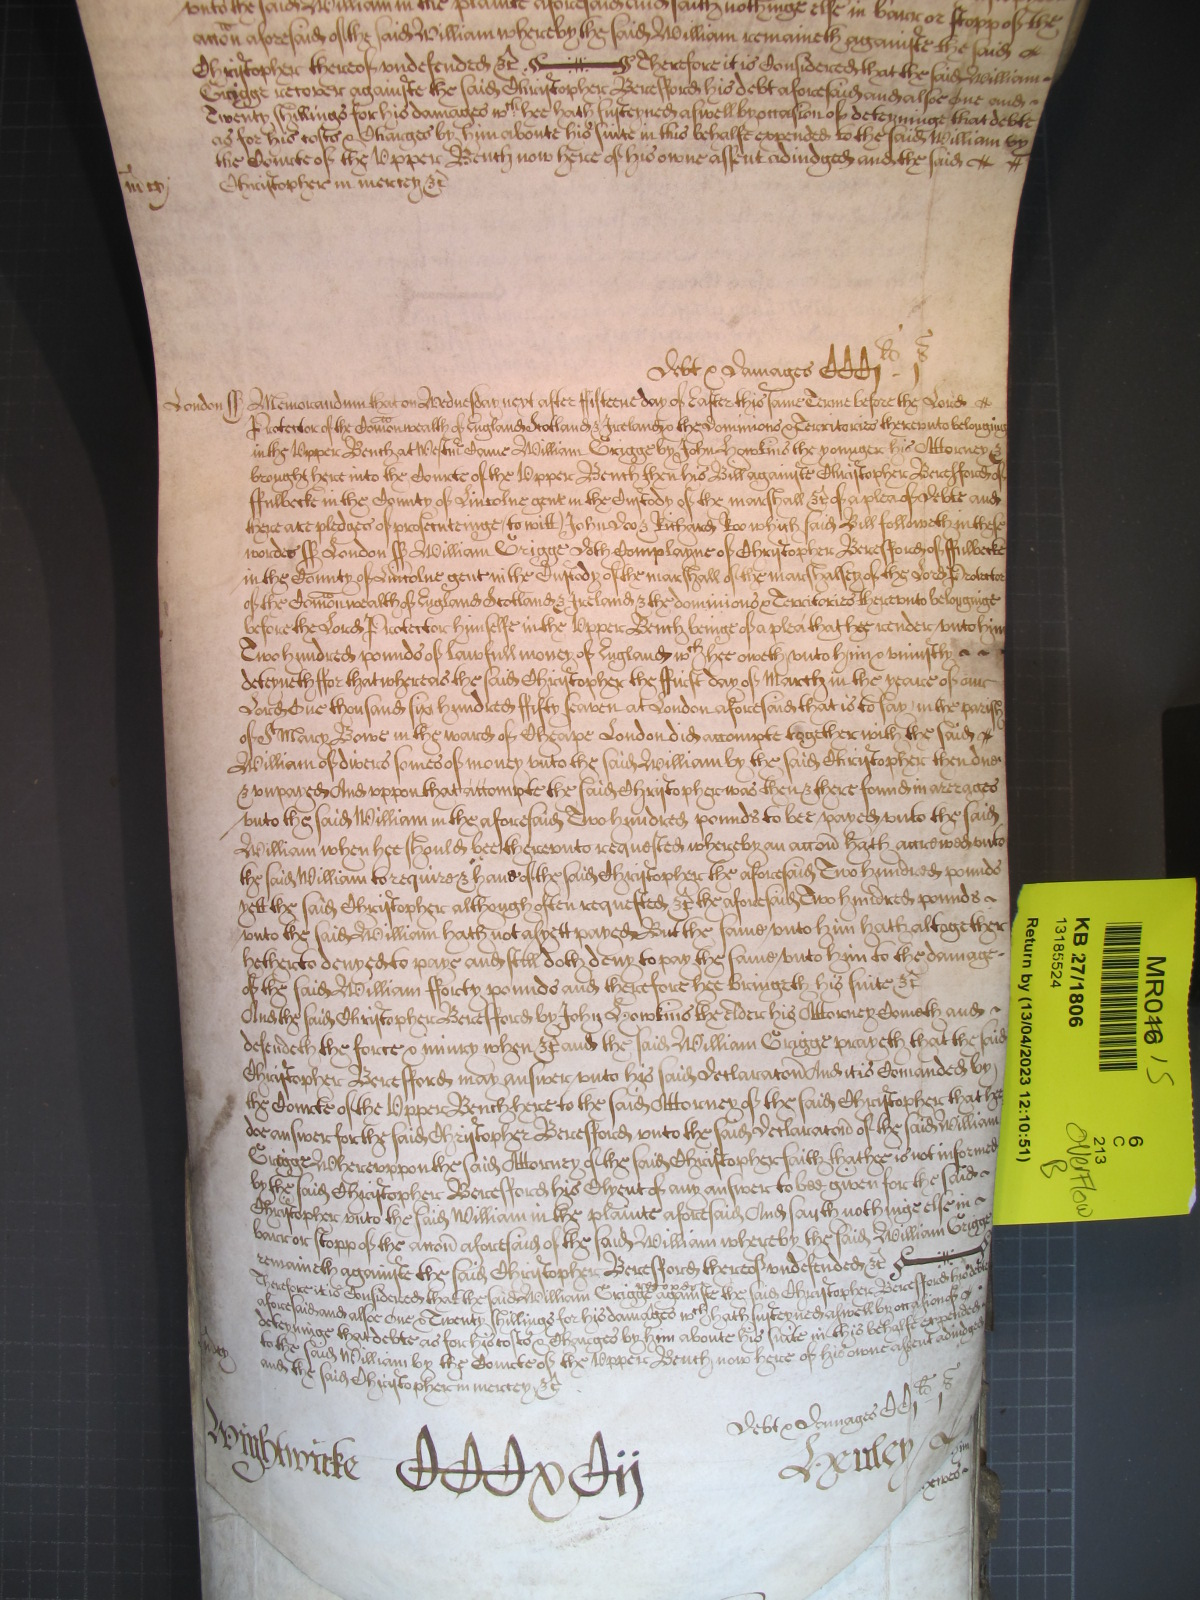 unto the said William in the plainte aforesaid And saith nothinge else in barr or stopp of the
accōn aforesaid of the said William whereby the said William remaineth againste the said
Christopher thereof undefended &c Therefore it is Considered that the said William
Grigge recover againste the said Christopher Beresford his debt aforesaid and alsoe one and
Twenty shillings for his damages wch hee hath susteyned aswell by occasion of deteyninge that debte
as for his costs & Charges by him aboute his suite in this behalfe expended to the said William by
the Courte of the Upper Bench now here of his owne assent adiudged and the said
Christopher in mercy &c
in mcy
Debt & Damages CCCj li j s
London ss Memorandum that on Wednesday next after fifteene day of Easter this same Terme before the Lord
Protector of the Com̄onwealth of England Scotland & Ireland & the Dominions & Territories thereunto belonging
in the Upper Bench at Westmr Came William Grigge by John Howkins the younger his Attorney &
brought here into the Courte of the Upper Bench then his Bill againste Christopher Beresford of
ffulbecke in the County of Lincolne gent in the Custody of the marshall &c of a plea of Debte and
there are pledges of prosecuteinge (to witt) John Doo & Richard Roo which said Bill followeth in these
wordes ss London ss William Grigge doth Complayne of Christopher Beresford of ffulbecke
in the County of Lincolne gent in the Custody of the marshall of the marshalsey of the Lord Protector
of the Com̄onwealth of England Scotland & Ireland & the dominions & Territories thereunto belonginge
before the Lord Protector himselfe in the Upper Bench beinge of a plea that hee render unto him
Two hundred pounds of lawfull money of England wch hee oweth unto him & uniustly
deteyneth ffor that whereas the said Christopher the ffirst day of March in the yeare of our
Lord One thousand six hundred fifty seaven at London aforesaid that is to say in the parish
of St Mary Bowe in the ward of Cheape London did accompte together with the said
William of divers somes of money unto the said William by the said Christopher then due
& unpayed And uppon that accompte the said Christopher was then & there found in arerages
unto the said William in the aforesaid Two hundred pounds to bee payed unto the said
William when hee should bee thereunto requested whereby an accōn hath accrewed unto
the said William to require & have of the said Christopher the aforesaid Two hundred pounds
yett the said Christopher although often requested &c the aforesaid Two hundred pounds
unto the said William hath not as yett payed But the same unto him hath altogether
hetherto denyed to paye and still doth deny to pay the same unto him to the damage
of the said William fforty pounds and therefore hee bringeth his suite &c
And the said Christopher Beresford by John Howkins the elder his Attorney Cometh and
defendeth the force & iniury when &c and the said William Grigge prayeth that the said
Christopher Beresford may answer unto his said Declaracōn And it is Comanded by
the Courte of the Upper Bench here to the said Attorney of the said Christopher that hee
doe answer for the said Christopher Beresford unto the said Declaracōn of the said William
Grigge Whereuppon the said Attorney of the said Christopher saith that hee is not informed
by the said Christopher Beresford his Clyent of any answer to bee given for the said
Christopher unto the said William in the plainte aforesaid And sayth nothinge else in
barr or stopp of the accōn aforesaid of the said William whereby the said William Grigge
remaineth againste the said Christopher Beresford thereof undefended &c
Therefore it is Considered that the said William Grigge recover againste the said Christopher Beresford his debte
aforesaid and alsoe One & Twenty shillings for his damages wch hath susteyned aswell by occasion of
deteyninge that debte as for his costs & Charges by him aboute his suite in this behalfe expended
to the said William by the Courte of the Upper Bench now here of his owne assent adiudged
and the said Christopher in mercy &c
in mcy
Debt & Damages CCj li j s
Wightwicke CCCxCij Henley
MR046 / 5
KB 27/1806
13185524
Return by (13/04/2023 12:10:51)
6
C
213
Overflow
B